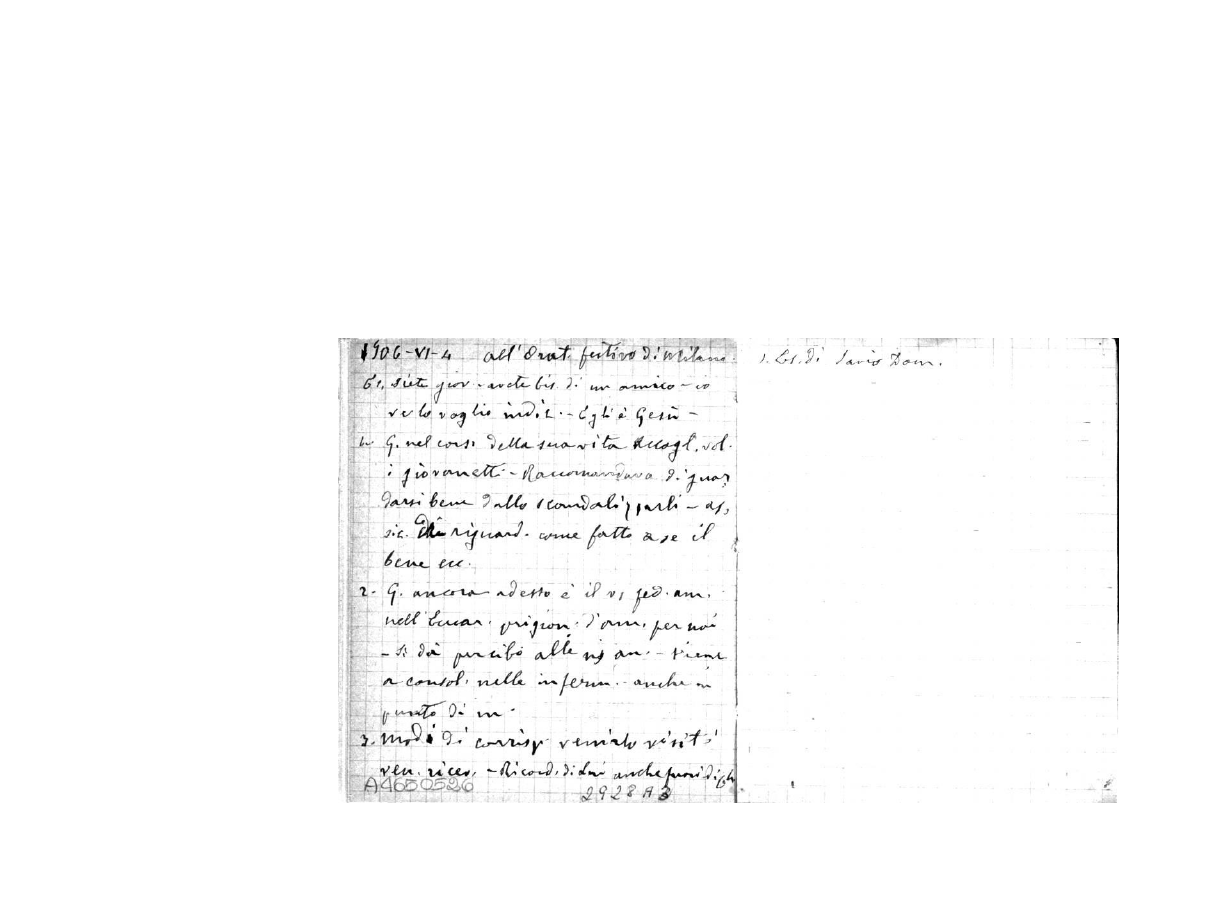 1906-VI-4 all'Orat. festivo di Milano.
Es. siete giov. - avete bis. di un amico - io
ve lo voglio indic. - Egli è Gesù -
1. G. nel corso della sua vita accogl. vol.
i giovanetti - Raccomandava di guar
darsi bene dallo scandalizzarli - as,
sic. di riguard. come fatto a se il
bene ecc.
2. G. ancora adesso è il vs fed. am.
nell'Eucar. prigion. d'am. per noi
- Si dà per cibo alle ns an. - Viene
a consol. nelle infermi. - anche in
punto di m.
3. Modi di corrisp venirlo visit
ven. ricev. - Ricord. di Lui anche fuori di
A4650526
2928 A3
1. Es. di Savio Dom.